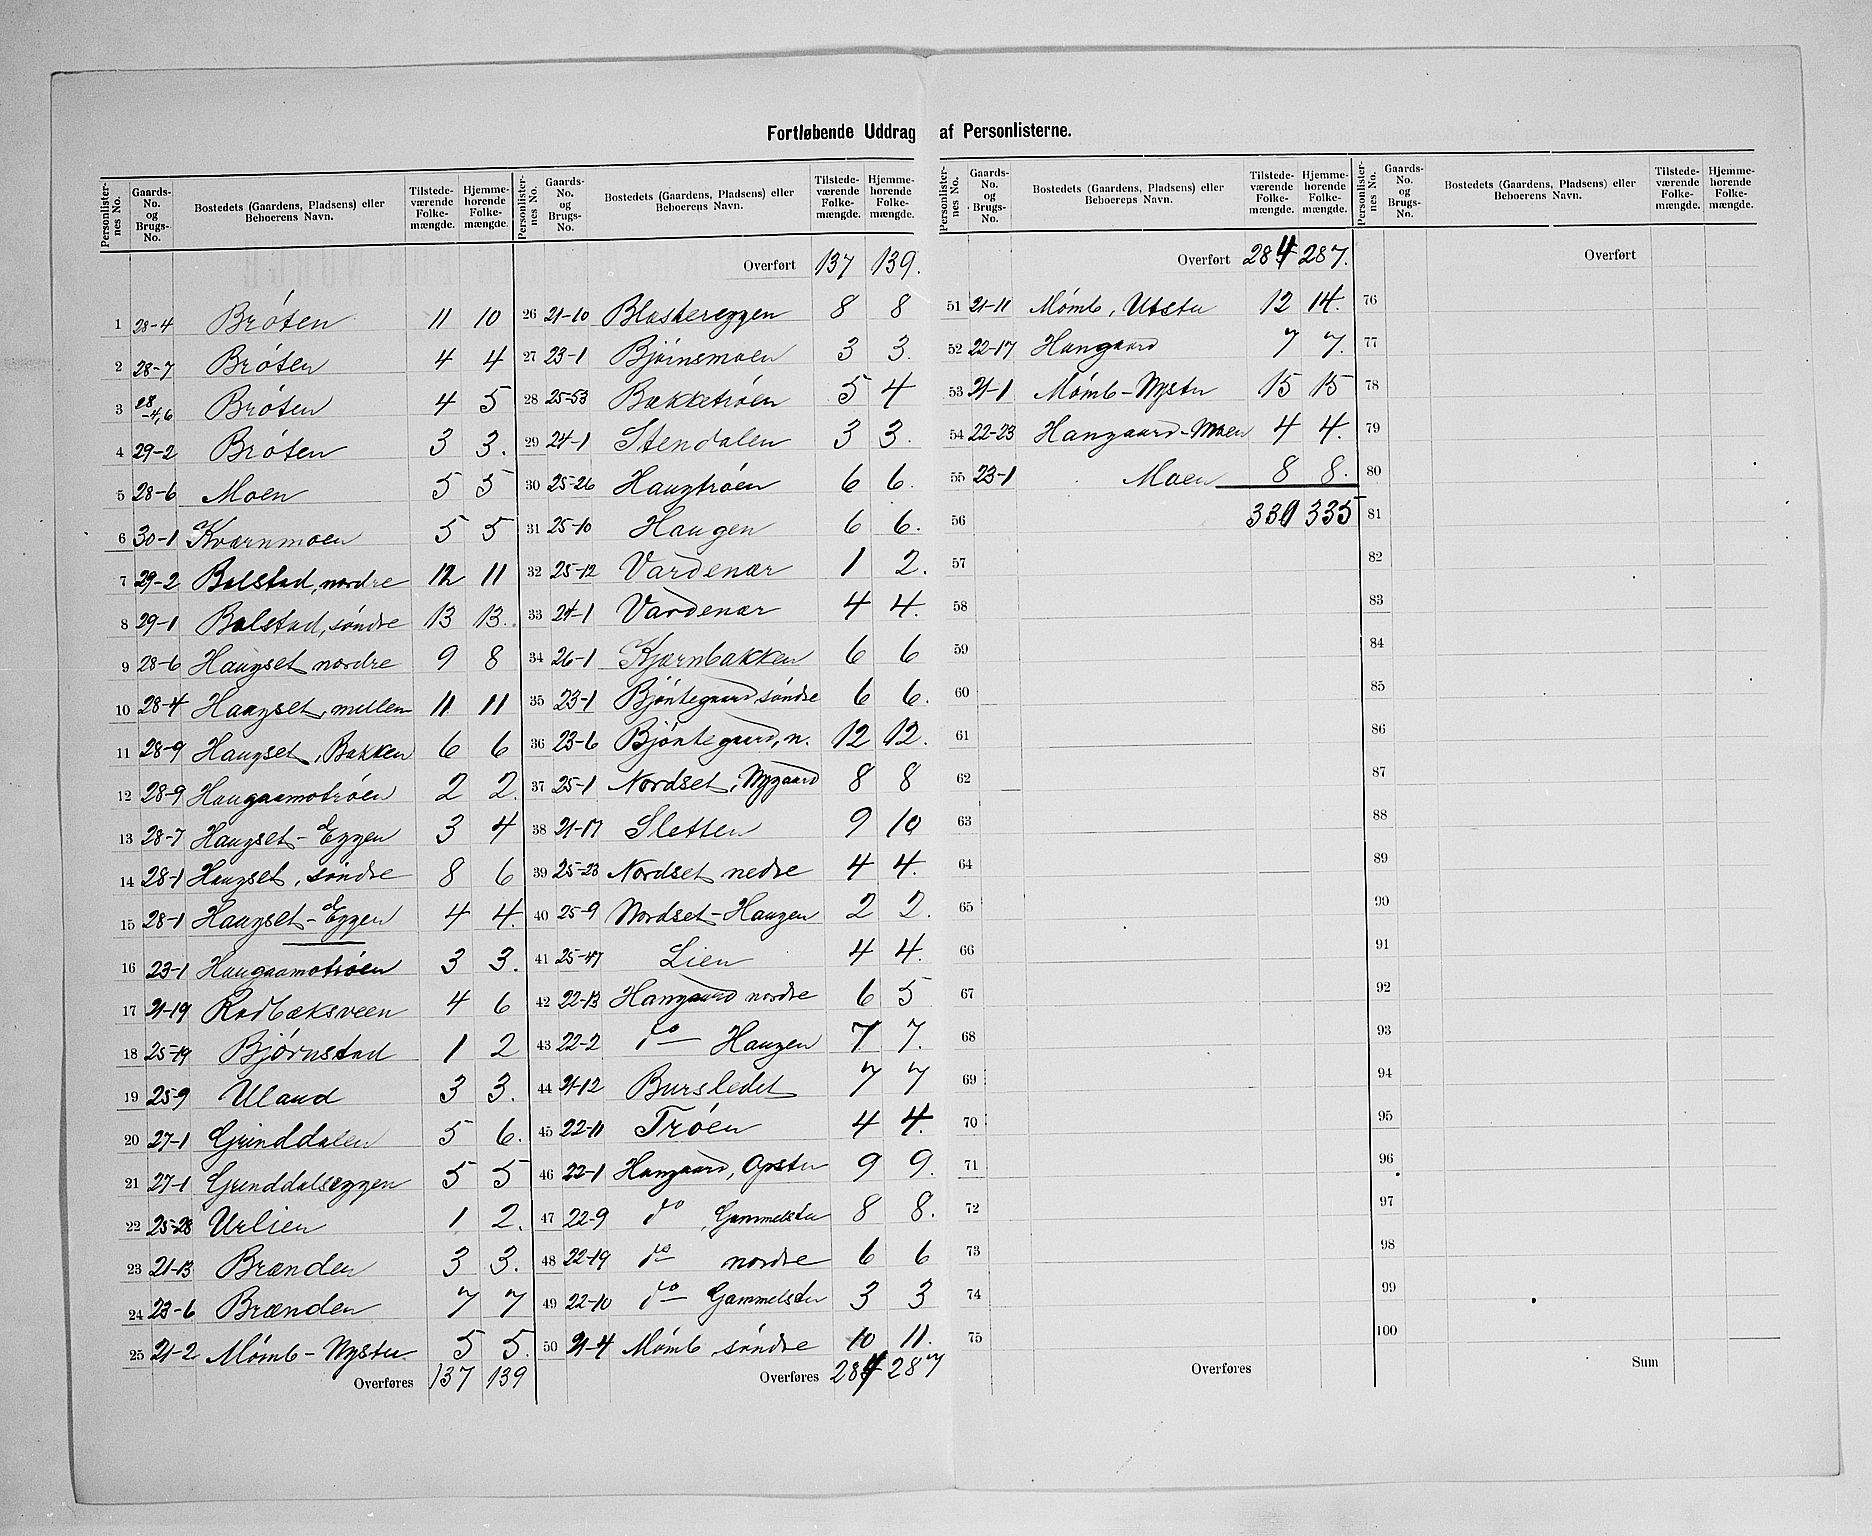 Fortløbende Uddrag af Personlisterne.
Personlisternes No. Gaards-No. og Brugs-No. Bostedets (Gaardens, Pladsens) eller Beboerens Navn. Tilstedeværende Folkemængde. Hjemmehørende Folkemængde.
1 28-4 Bróten 11 10
2 28-7 Bróten 4 4
3 28-4,6 Bróten 4 5
4 29-2 Bróten 3 3.
5 28-6 Moen 5 5
6 30-1 Kværnmoen 5 5
7 29-2 Bolstad, nordre 12 11
8 29-1 Bolstad, søndre 13 13.
9 28-6 Haugset nordre 9 8
10 28-4 Haugset, mellem 11 11
11 28-9 Haugset, Bakken 6 6
12 28-9 Haugaamotróen 2 2.
13 28-7 Haugset-Eggen 3 4
14 28-1 Haugset, søndre 8 6
15 28-1 Haugset-Eggen 4 4.
16 23-1 Haugaamotróen 3 3.
17 21-19 Rødbæksveen 4 6
18 25-19 Bjørnstad 1 2
19 25-9 Uland 3 3.
20 27-1 Grinddalen 5 6.
21 27-1 Grinddalseggen 5 5
22 25-28 Urlien 1 2.
23 21-13 Brænden 3 3.
24 23-6 Brænden 7 7
25 21-2 Mómb-Nystu 5 5.
Overføres 137 139
Personlisternes No. Gaards-No. og Brugs-No. Bostedets (Gaardens, Pladsens) eller Beboerens Navn. Tilstedeværende Folkemængde. Hjemmehørende Folkemængde.
Overført 137 139.
26 21-10 Blostereggen 8 8
27 23-1 Bjóinsmoen 3 3.
28 25-53 Bækketróen 5 4
29 24-1 Stendalen 3 3.
30 25-26 Haugtróen 6 6.
31 25-10 Haugen 6 6.
32 25-12 Vardenær 1 2.
33 24-1 Vardenær 4 4.
34 26-1 Kjærnbakken 6 6
35 23-1 Bjóntegaard søndre 6 6.
36 23-6 Bjóntegaard, n. 12 12.
37 25-1 Nordset, Nygaard 8 8
38 21-17 Sletten 9 10
39 25-23 Nordset nedre 4 4.
40 25-9 Nordset-Haugen 2 2.
41 25-47 Lien 4 4.
42 22-13 Hangaard nordre 6 5
43 22-2 do Haugen 7 7.
44 21-12 Bursledet 7 7
45 22-11 Tróen 4 4.
46 22-1 Hangaard, Opstu 9 9.
47 22-9 do, Gammelstu 8 8.
48 22-19 do nordre 6 6
49 22-10 do Gammelstu 3 3
50 21-4 Mómb søndre 10 11.
Overføres 284 287
Personlisternes No. Gaards-No. og Brugs-No. Bostedets (Gaardens, Pladsens) eller Beboerens Navn. Tilstedeværende Folkemængde. Hjemmehørende Folkemængde.
Overført 284 287.
51 21-11 Mómb, Utstu 12 14.
52 22-17 Hangaard 7 7.
53 21-1 Mómb-Nystu 15 15
54 22-23 Hangaard-Moen 4 4.
55 23-1 Moen 8 8.
56 330 335
57
58
59
60
61
62
63
64
65
66
67
68
69
70
71
72
73
74
75
Overføres
Personlisternes No. Gaards-No. og Brugs-No. Bostedets (Gaardens, Pladsens) eller Beboerens Navn. Tilstedeværende Folkemængde. Hjemmehørende Folkemængde.
Overført
76
77
78
79
80
81
82
83
84
85
86
87
88
89
90
91
92
93
94
95
96
97
98
99
100
Sum